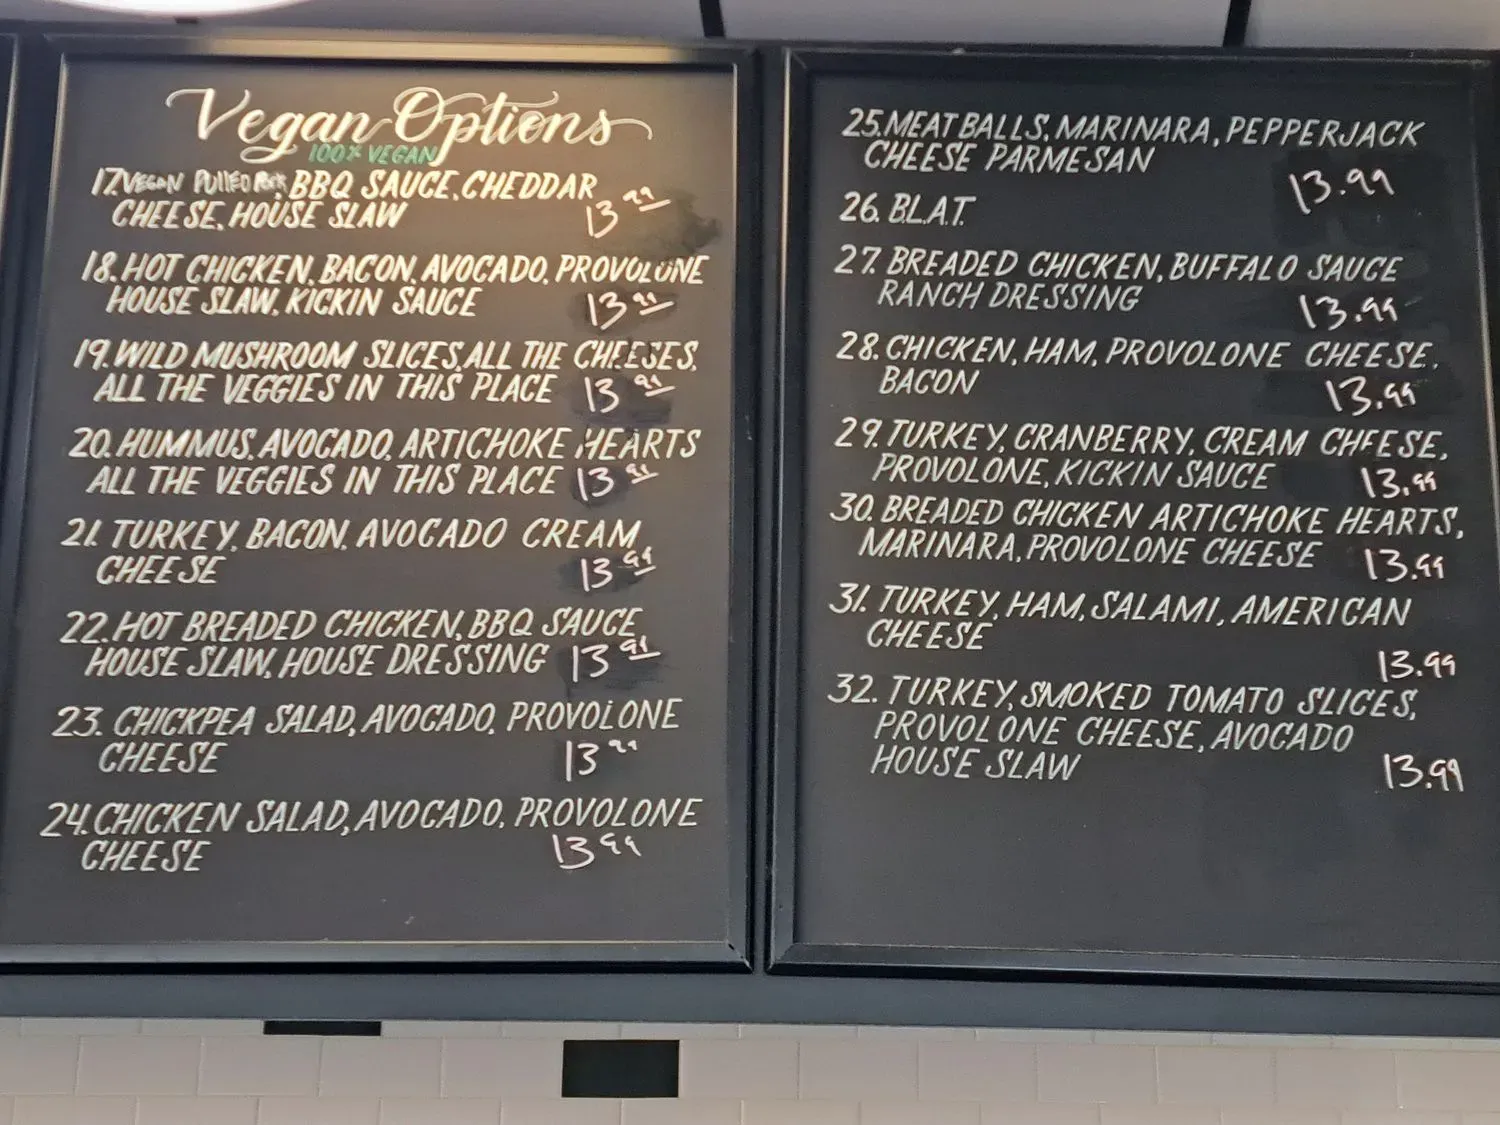 Vegan Options
100% VEGAN
17. VEGAN PULLED PORK, BBQ SAUCE, CHEDDAR
CHEESE, HOUSE SLAW 13.99
18. HOT CHICKEN, BACON, AVOCADO, PROVOLONE
HOUSE SLAW, KICKIN SAUCE 13.99
19. WILD MUSHROOM SLICES, ALL THE CHEESES,
ALL THE VEGGIES IN THIS PLACE 13.99
20. HUMMUS, AVOCADO, ARTICHOKE HEARTS
ALL THE VEGGIES IN THIS PLACE 13.99
21. TURKEY, BACON, AVOCADO CREAM
CHEESE 13.99
22. HOT BREADED CHICKEN, BBQ SAUCE
HOUSE SLAW, HOUSE DRESSING 13.99
23. CHICKPEA SALAD, AVOCADO, PROVOLONE
CHEESE 13.99
24. CHICKEN SALAD, AVOCADO, PROVOLONE
CHEESE 13.99
25. MEATBALLS, MARINARA, PEPPERJACK
CHEESE PARMESAN 13.99
26. B.L.A.T.
27. BREADED CHICKEN, BUFFALO SAUCE
RANCH DRESSING 13.99
28. CHICKEN, HAM, PROVOLONE CHEESE,
BACON 13.99
29. TURKEY, CRANBERRY, CREAM CHEESE,
PROVOLONE, KICKIN SAUCE 13.99
30. BREADED CHICKEN ARTICHOKE HEARTS,
MARINARA, PROVOLONE CHEESE 13.99
31. TURKEY, HAM, SALAMI, AMERICAN
CHEESE 13.99
32. TURKEY, SMOKED TOMATO SLICES,
PROVOLONE CHEESE, AVOCADO
HOUSE SLAW 13.99